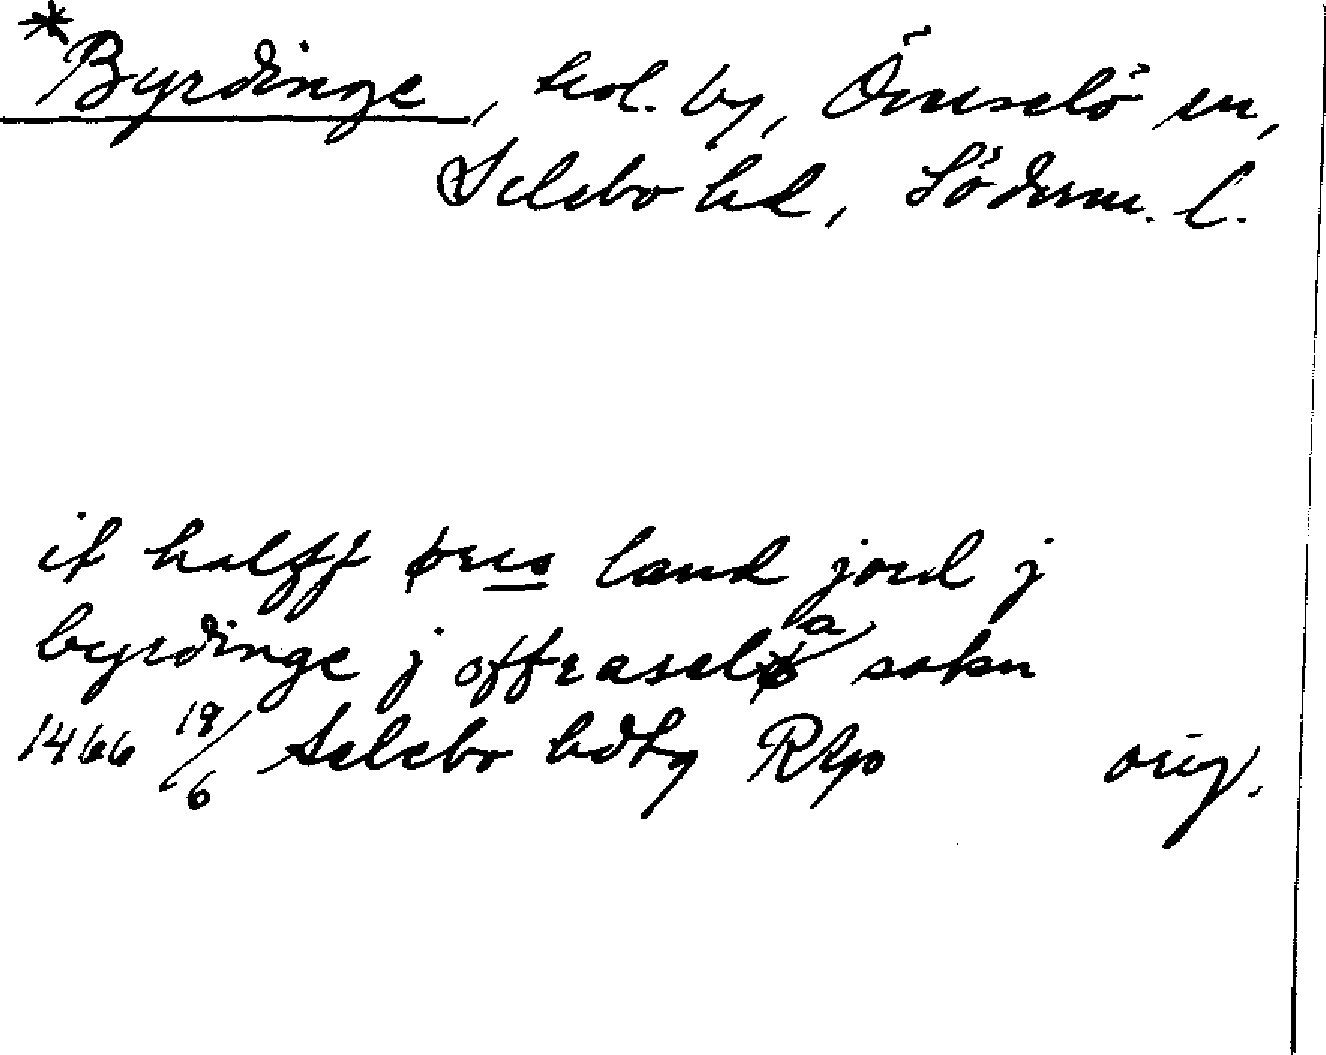 *Byrdinge, led. by, Överselö sn,
Selebo hd, Söderm. l.
it halff øres land jord j
byrdinge j offraselø a sokn
1466 19/6 Selebo hdtg RAp orig.